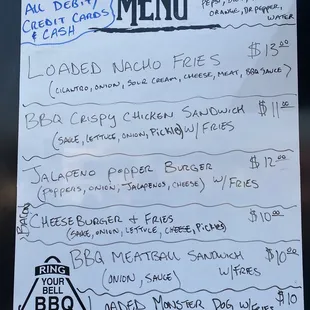 ALL DEBIT/
CREDIT CARDS
& CASH
MENU
PEPSI,
ORANGE, DR PEPPER,
WATER
LOADED NACHO FRIES $13.00
(CILANTRO, ONION, SOUR CREAM, CHEESE, MEAT, BBQ SAUCE)
BBQ CRISPY CHICKEN SANDWICH $11.00
(SAUCE, LETTUCE, ONION, PICKLE) W/ FRIES
JALAPENO POPPER BURGER $12.00
(POPPERS, ONION, JALAPENOS, CHEESE) W/ FRIES
BACON
CHEESEBURGER + FRIES $10.00
(SAUCE, ONION, LETTUCE, CHEESE, PICKLES)
BBQ MEATBALL SANDWICH $10.00
(ONION, SAUCE) W/FRIES
RING
YOUR
BELL
BBQ
LOADED MONSTER DOG W/FRIES $10